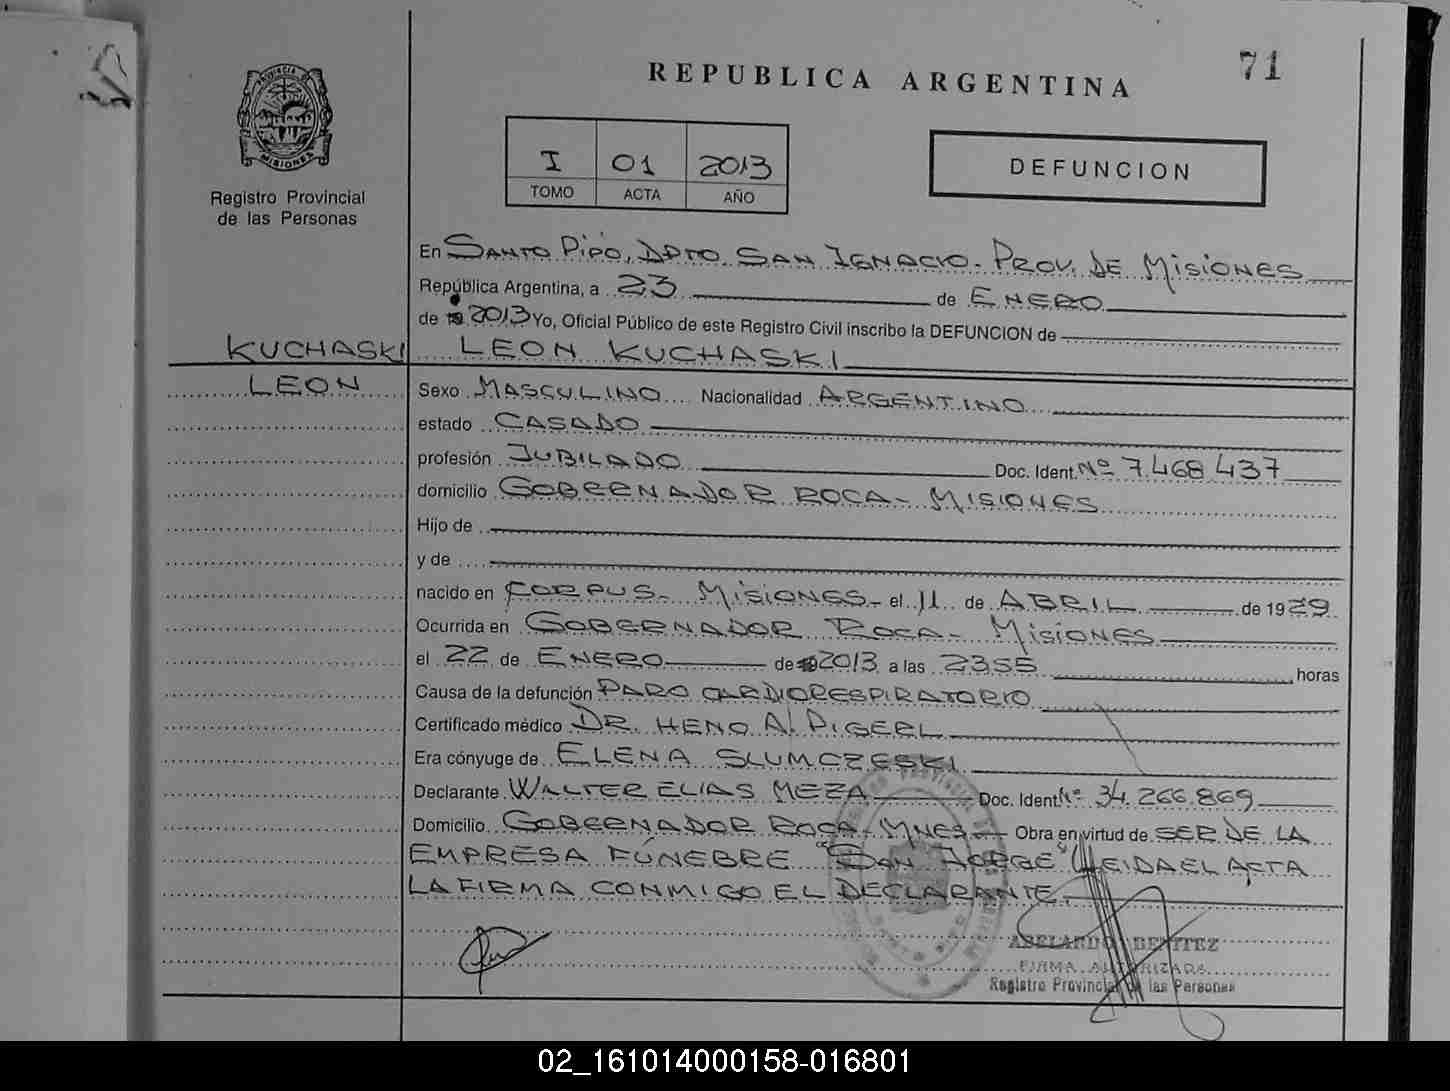 71
REPUBLICA ARGENTINA
PROVINCIA DE
MISIONES
Registro Provincial
de las Personas
I 01 2013
TOMO ACTA AÑO
DEFUNCION
En SANTO PIPÓ, DPTO. SAN IGNACIO - PROV. DE MISIONES
República Argentina, a 23 de ENERO
de 2013 Yo, Oficial Público de este Registro Civil inscribo la DEFUNCION de
KUCHASKI LEON KUCHASKI
LEON
Sexo MASCULINO Nacionalidad ARGENTINO
estado CASADO
profesión JUBILADO Doc. Ident. Nº 7.468.437
domicilio GOBERNADOR ROCA - MISIONES
Hijo de
y de
nacido en CORPUS - MISIONES - el 11 de ABRIL de 1929
Ocurrida en GOBERNADOR ROCA - MISIONES
el 22 de ENERO de 2013 a las 23.55 horas
Causa de la defunción PARO CARDIORESPIRATORIO
Certificado médico DR. HENO A. PIGERL
Era cónyuge de ELENA SLUMCZESKI
Declarante WALTER ELIAS MEZA Doc. Ident Nº 34.266.869
Domicilio GOBERNADOR ROCA - MNES - Obra en virtud de SER DE LA
EMPRESA FÚNEBRE "SAN JORGE" LEIDA EL ACTA
LA FIRMA CONMIGO EL DECLARANTE.
ABELARDO BENITEZ
FIRMA AUTORIZADA
Registro Provincial de las Personas
02_161014000158-016801